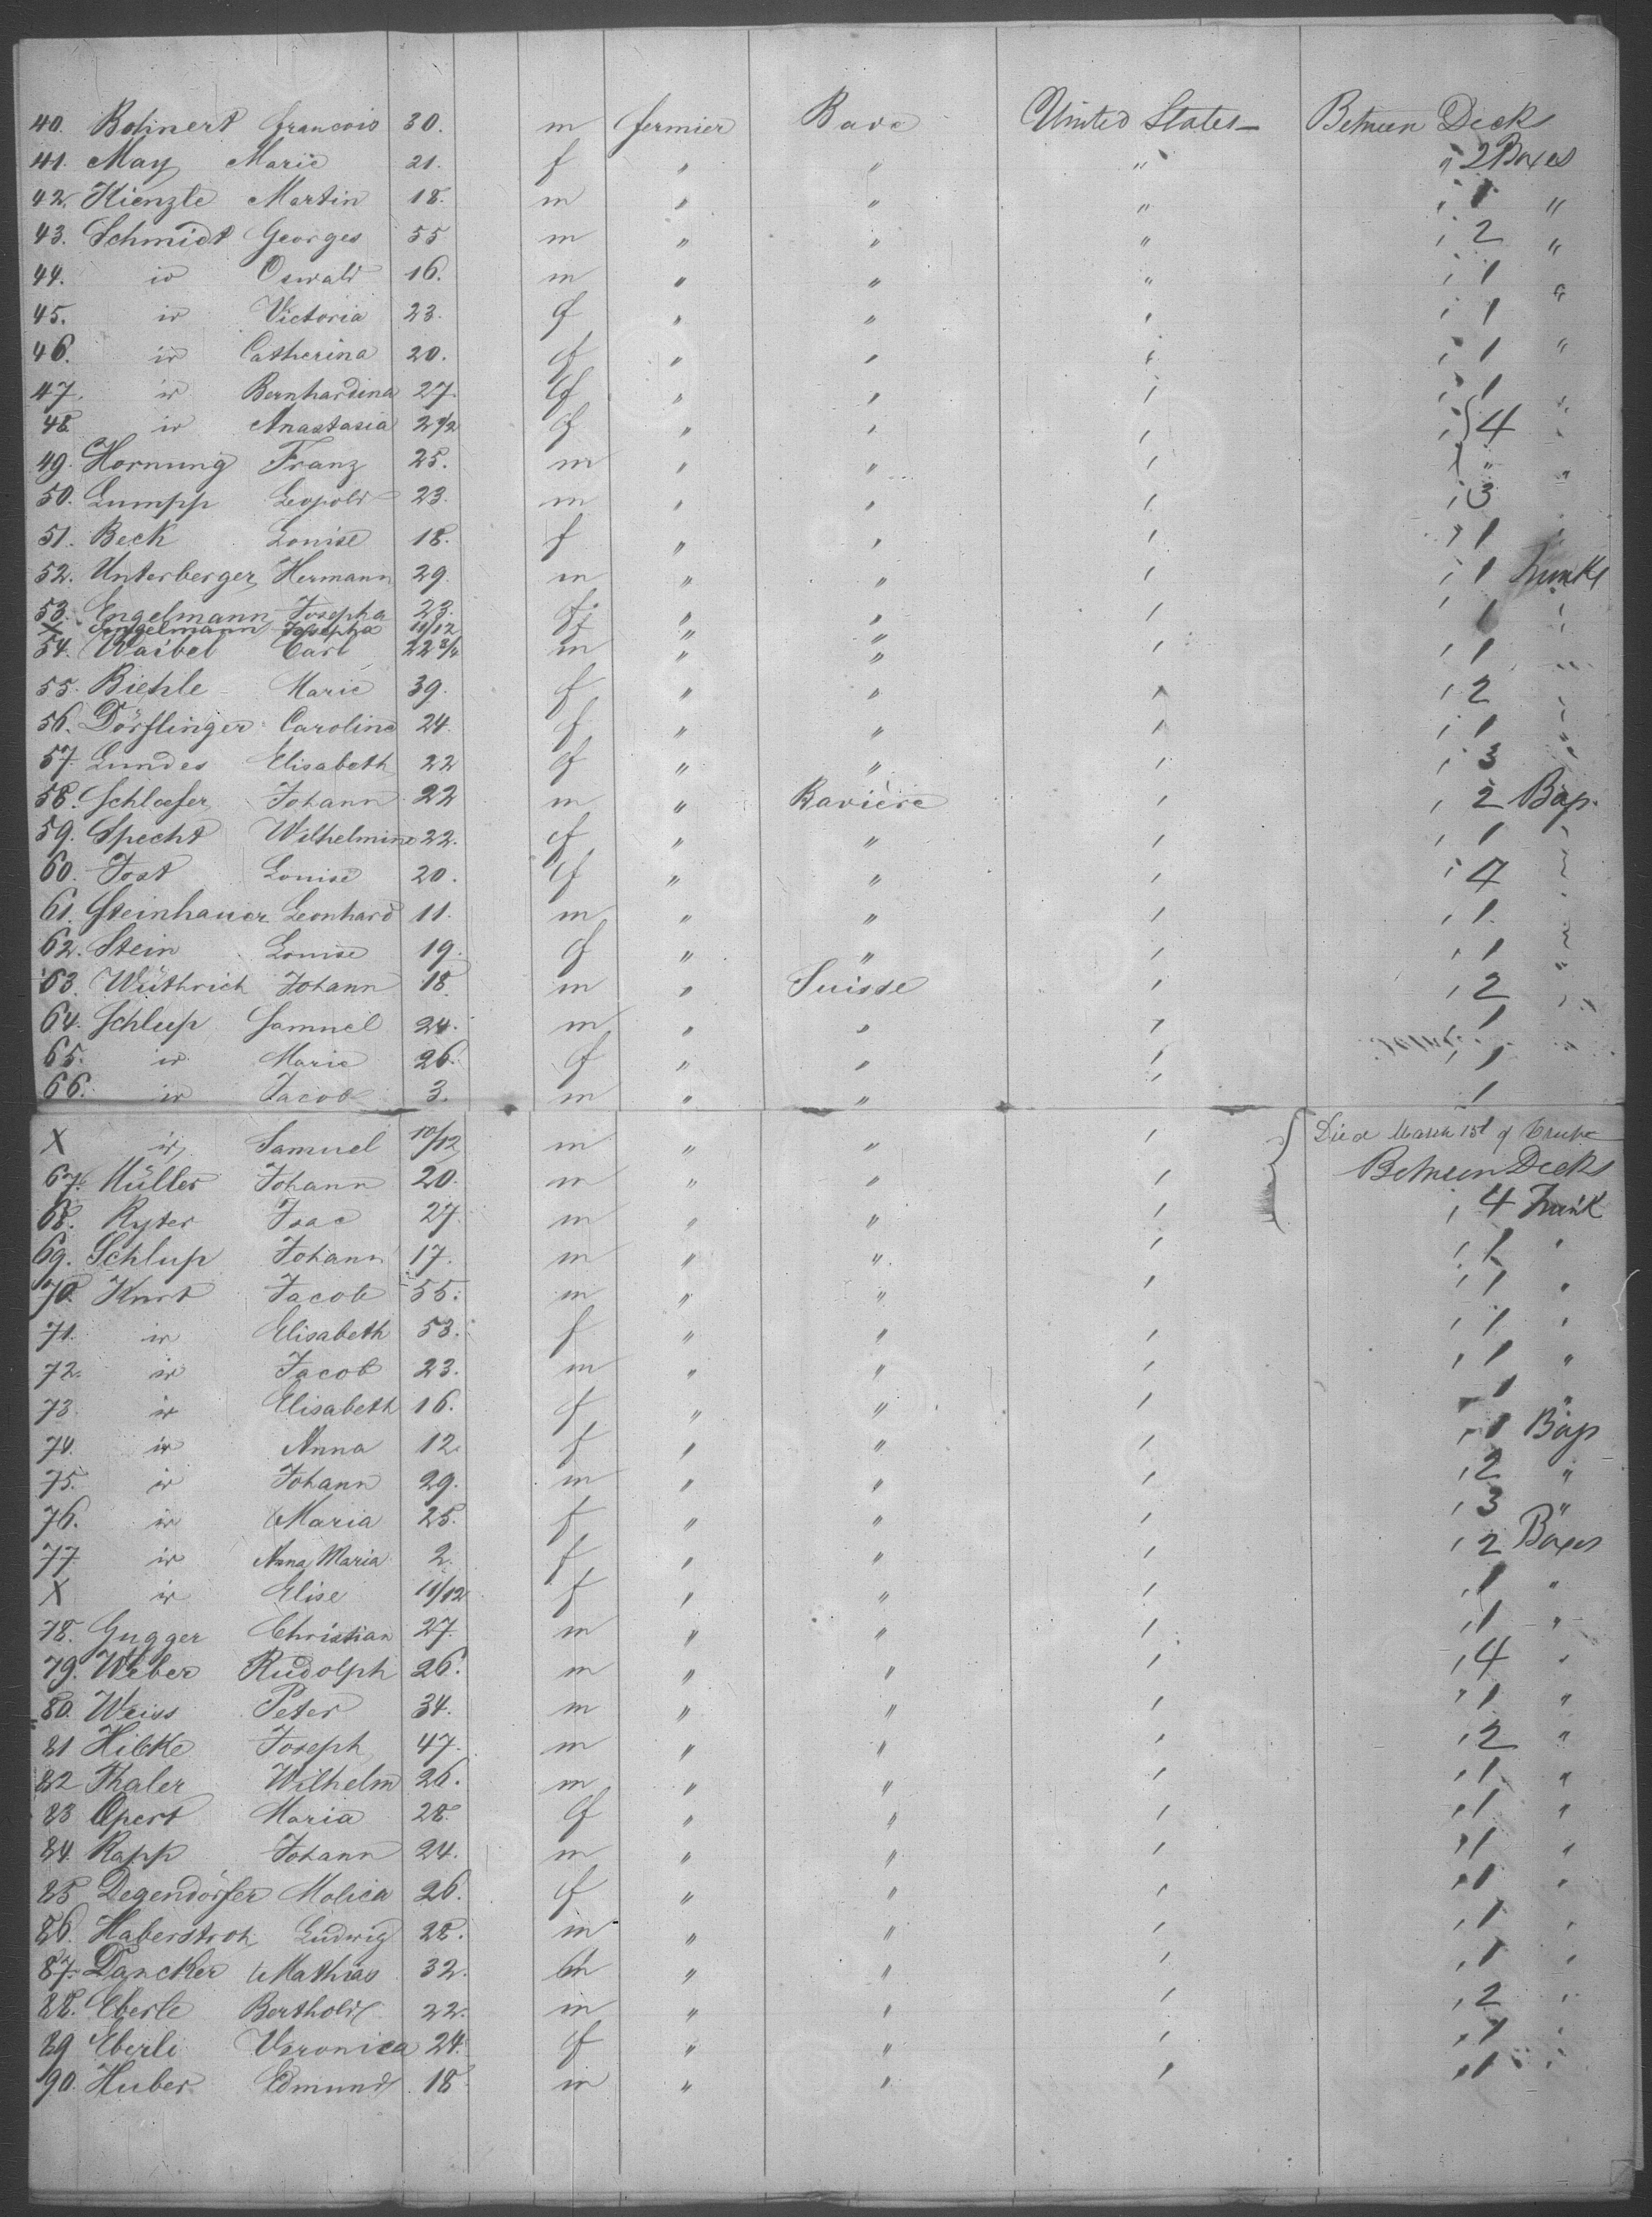 40. Bohnert francois 30. m fermier Bade United States Between Decks
41. May Marie 21. f " " " " 2 Boxes
42. Kienzle Martin 18. m " " " " 1 "
43. Schmidt Georges 55 m " " " " 2 "
44. id Oswald 16. m " " " " 1 "
45. id Victoria 23. f " " " " 1
46. id Catherina 20. f " " " " 1 "
47. id Bernhardina 27. f " " " " 1
48 id Anastasia 2 1/2 f " " " " 4 "
49. Hornung Franz 25. m " " " " "
50. Lumpp Leopold 23. m " " " " 3
51. Beck Louise 18. f " " " " 1 "
52. Unterberger Hermann 29. m " " " " 1 Trunks
53. Engelmann Josepha 23. f " " " " 1 "
X Engelmann Josepha 11/12 f " "
54. Waibel Carl 22 3/4 m " " " " 1
55. Biehle Marie 39. f " " " " 2
56. Dörflinger Caroline 24. f " " " " 1 "
57. Lundes Elisabeth 22 f " " " " 3 "
58. Schloefer Johann 22 m " Bavière " " 2 Bags
59. Specht Wilhelmine 22. f " " " " 1 "
60. Jost Louise 20. f " " " " 4 "
61. Steinhauer Leonhard 11. m " " " " 1 "
62. Stein Louise 19. f " " " " 1 "
63. Wüthrich Johann 18. m " Suisse " " 2 "
64. Schlup Samuel 24. m " " " 1
65. id Marie 26. f " " " " 1
66. id Jacob 3. m " " " " 1
X id Samuel 10/12 m " " " Died March 1st of Croup
67. Müller Johann 20. m " " " Between Decks
68. Ryter Isac 27 m " " " " 4 Trunk
69. Schlup Johann 17. m " " " " 1 "
70. Knrt Jacob 55. m " " " " 1 "
71. id Elisabeth 53. f " " " " 1 "
72. id Jacob 23. m " " " " 1 "
73. id Elisabeth 16. f " " " 1 "
74. id Anna 12. f " " " " 1 Bags
75. id Johann 29. m " " " " 2 "
76. id Maria 25. f " " " " 3 "
77 id Anna Maria 2. f " " " " 2 Boxes
X id Elise 11/12 f " " " " 1 "
78. Gugger Christian 27. m " " " " 1 "
79. Weber Rudolph 26. m " " " " 4 "
80. Weiss Peter 34. m " " " " 1 "
81 Hilcke Joseph 47. m " " " " 2 "
82 Thaler Wilhelm 26. m " " " " 1 "
83 Opert Maria 28. f " " " " 1 "
84. Rapp Johann 24. m " " " " 1 "
85 Degendörfer Molica 26. f " " " " 1 "
86. Haberstroh Ludwig 28. m " " " " 1 "
87. Dancker Mathias 32. m " " " " 1 "
88. Eberle Berthold 22. m " " " " 2 "
89 Eberli Veronica 24. f " " " " 1 "
90. Huber Edmund 18 m " " " " 1 "